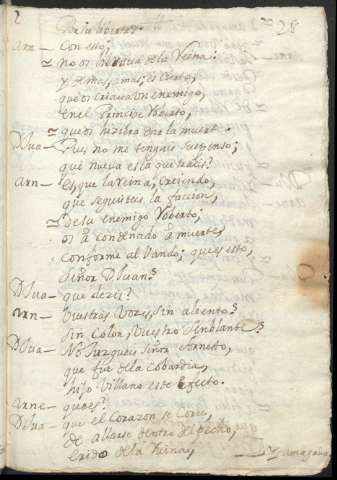 2 28
Por la libertad.
Arn— Con esto;
no os la vida de la Reina:
y demas, amas, es cierto,
que os criava un enemigo,
en el Principe Roberto,
que os hiziera dar la muerte.
D Jua— Pues no me tengais suspenso;
que nueva es la que traeis?
arn— Es, que la Reina, creiendo,
que seguisteis la faccion,
de su enemigo Roberto;
os a condenado a muerte,
conforme al Vando; que es esto,
señor D Juan?
D Jua— que dezis?
arn— Vuestras Vozes, sin aliento?
sin Color, Vuestro senblante?
D Jua— No Juzgueis señor Arnesto,
que fue de la cobardia,
hijo Villano este efecto.
Arne— que es?
D Jua— que el Corazon se Corre,
de allarse dentro del pecho,
erido de la Reina,